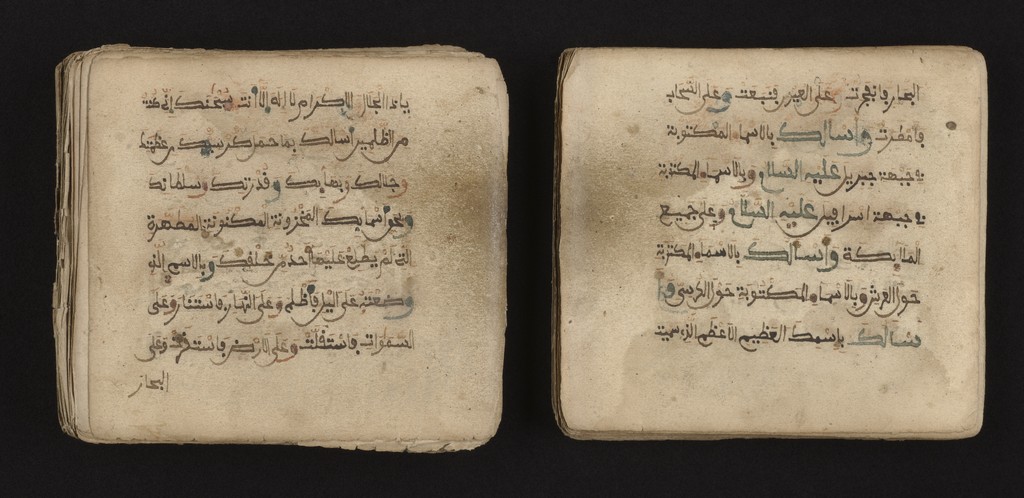 ياذا الجلال والاكرام لا إله إلا أنت سبحنك إني كنت
من الظلمين أسالك بما حمل كرسيك من عظمتك
وجلالك وبهايك وقدرتك وسلطانك
وبحق اسمايك المخزونة المكنونة المطهرة
التي لم يطلع عليها أحد من خلقك وبالاسم الذي
وضعته على اليل فأظلم وعلى النهار فاستنار وعلى
السموات فاستقلت وعلى الارض فاستقرت وعلى
البحار
البحار فانفجرت وعلى العيون فنبعت وعلى السحاب
فامطرت وأسالك بالاسماء المكتوبة
في جبهة جبريل عليه السلام وبالاسماء المكتوبة
في جبهة اسرافيل عليه السلام وعلى جميع
الملايكة وأسالك بالاسماء المكتوبة
حول العرش وبالاسماء المكتوبة حول الكرسي وأ
سالك باسمك العظيم الأعظم الذي سميت